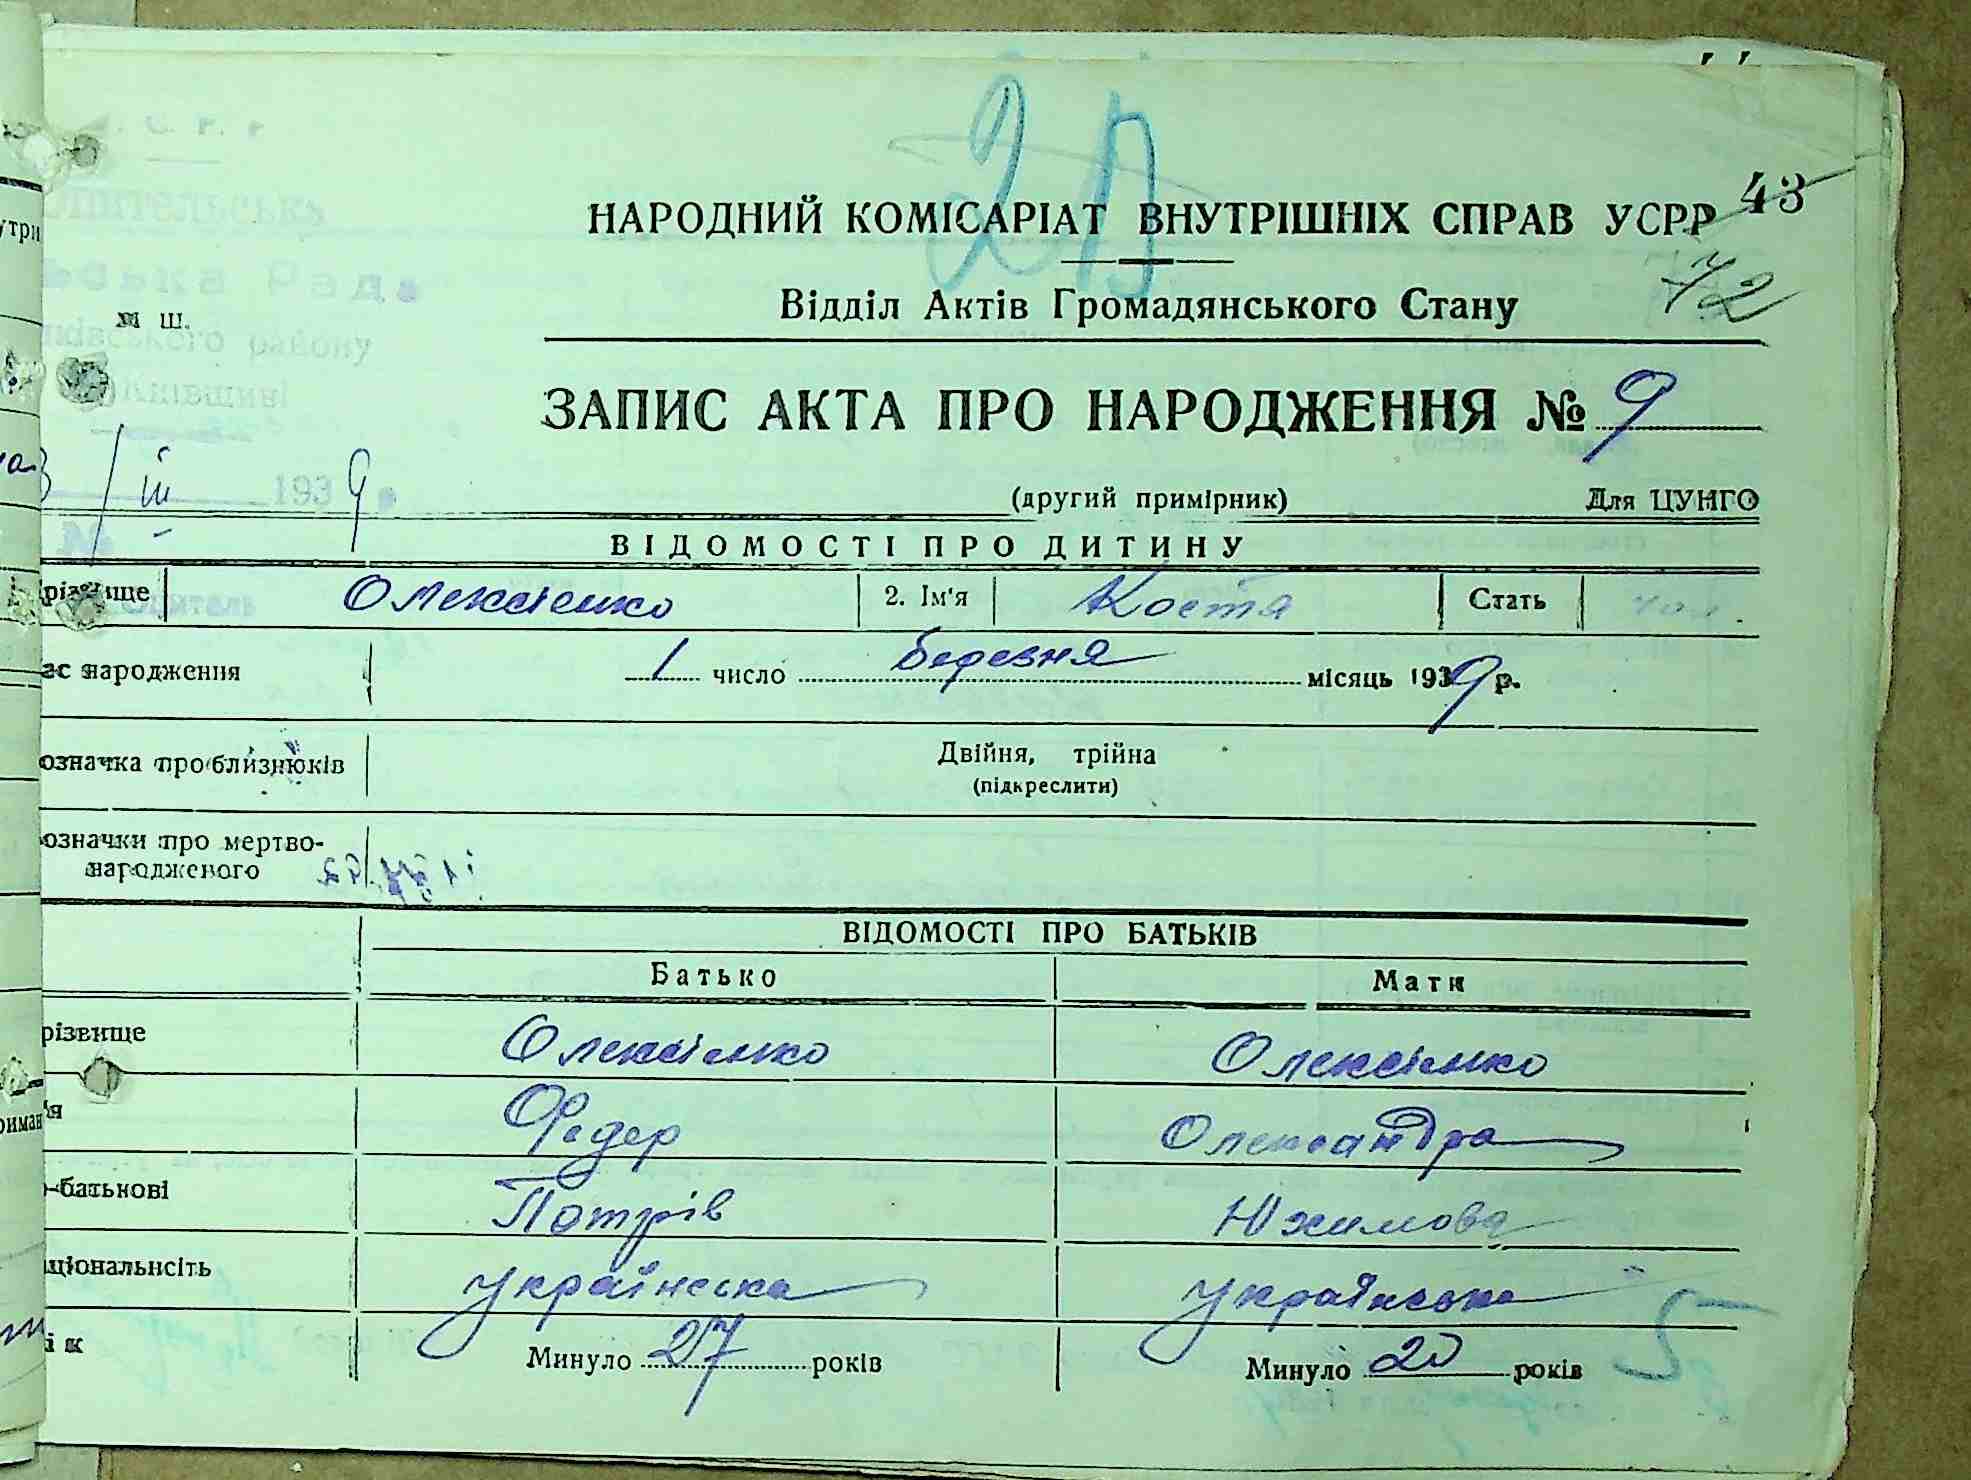 20
НАРОДНИЙ КОМІСАРІАТ ВНУТРІШНІХ СПРАВ УСРР 43
72
Відділ Актів Громадянського Стану
ш.
ЗАПИС АКТА ПРО НАРОДЖЕННЯ № 9
1/III 1939 р.
(другий примірник) Для ЦУНГО
№
ВІДОМОСТІ ПРО ДИТИНУ
різвище Олексієнко 2. Ім'я Костя Стать чол.
ас народження 1 число березня місяць 1939 р.
означка про близнюків Двійня, трійна
(підкреслити)
означки про мертво-
народженого
ВІДОМОСТІ ПРО БАТЬКІВ
Батько Мати
різвище Олексієнко Олексієнко
'я Федер Олександра
-батькові Потрів Юхимова
аціональність українська українська
ік Минуло 27 років Минуло 20 років
5